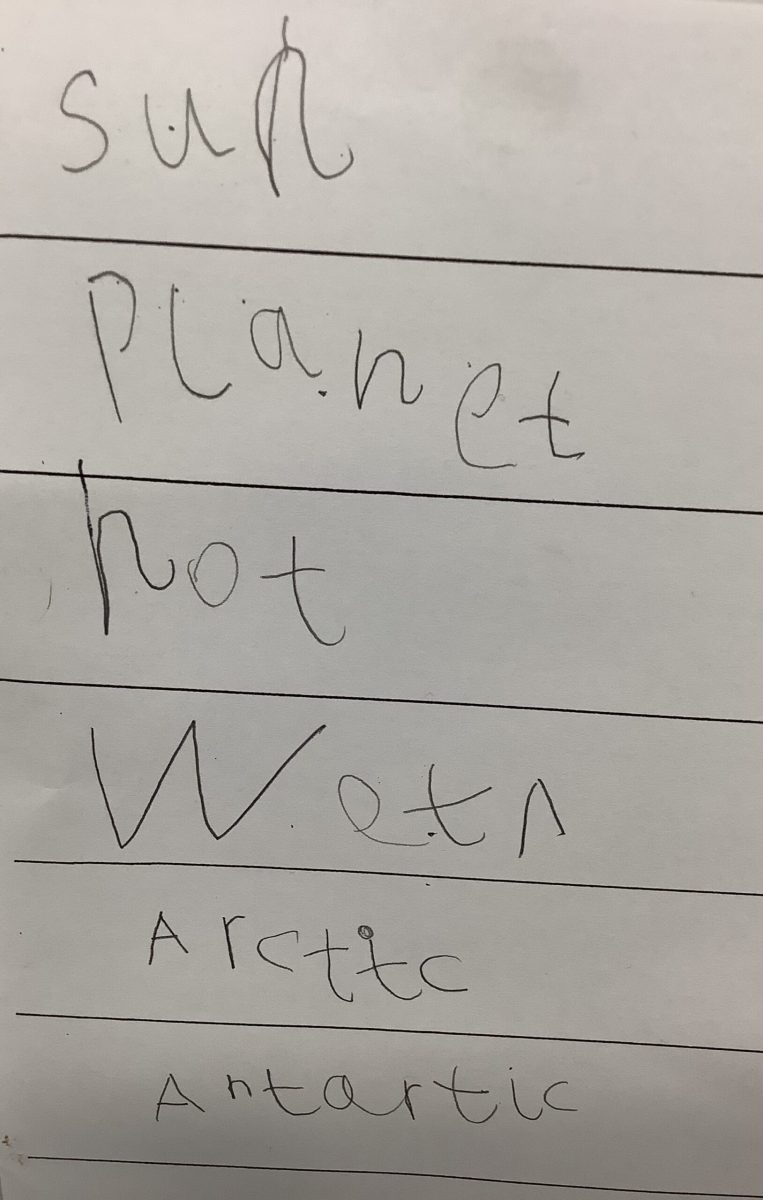 sun
Planet
hot
Wetn
Arctic
Antartic